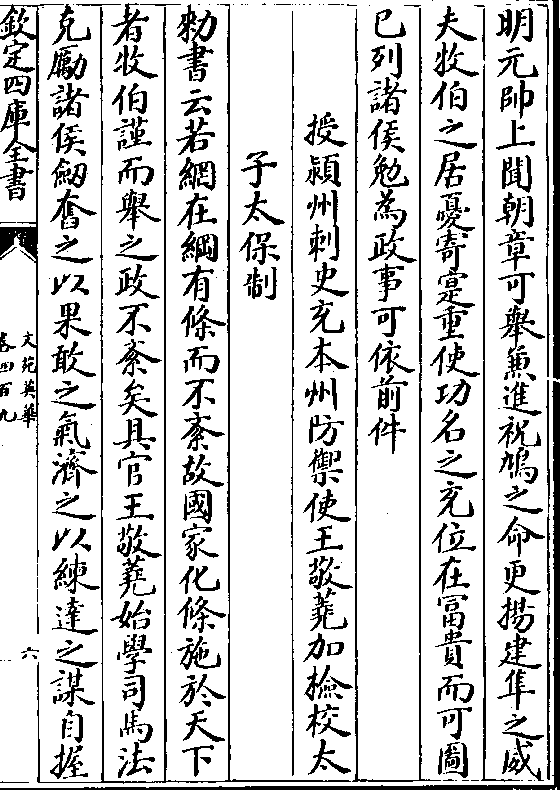 明元帥上聞朝章可舉兼進祝鳩之命更揚建隼之威
夫牧伯之居憂寄寔重使功名之充位在富貴而可圖
已列諸侯勉為政事可依前件
授潁州刺史充本州防禦使王敬蕘加檢校太
子太保制
勑書云若網在綱有條而不紊故國家化條施於天下
者牧伯謹而舉之政不紊矣具官王敬蕘始學司馬法
克勵諸侯劒奮之以果敢之氣濟之以練達之謀自握
欽定四庫全書
文苑英華
卷四百九
六